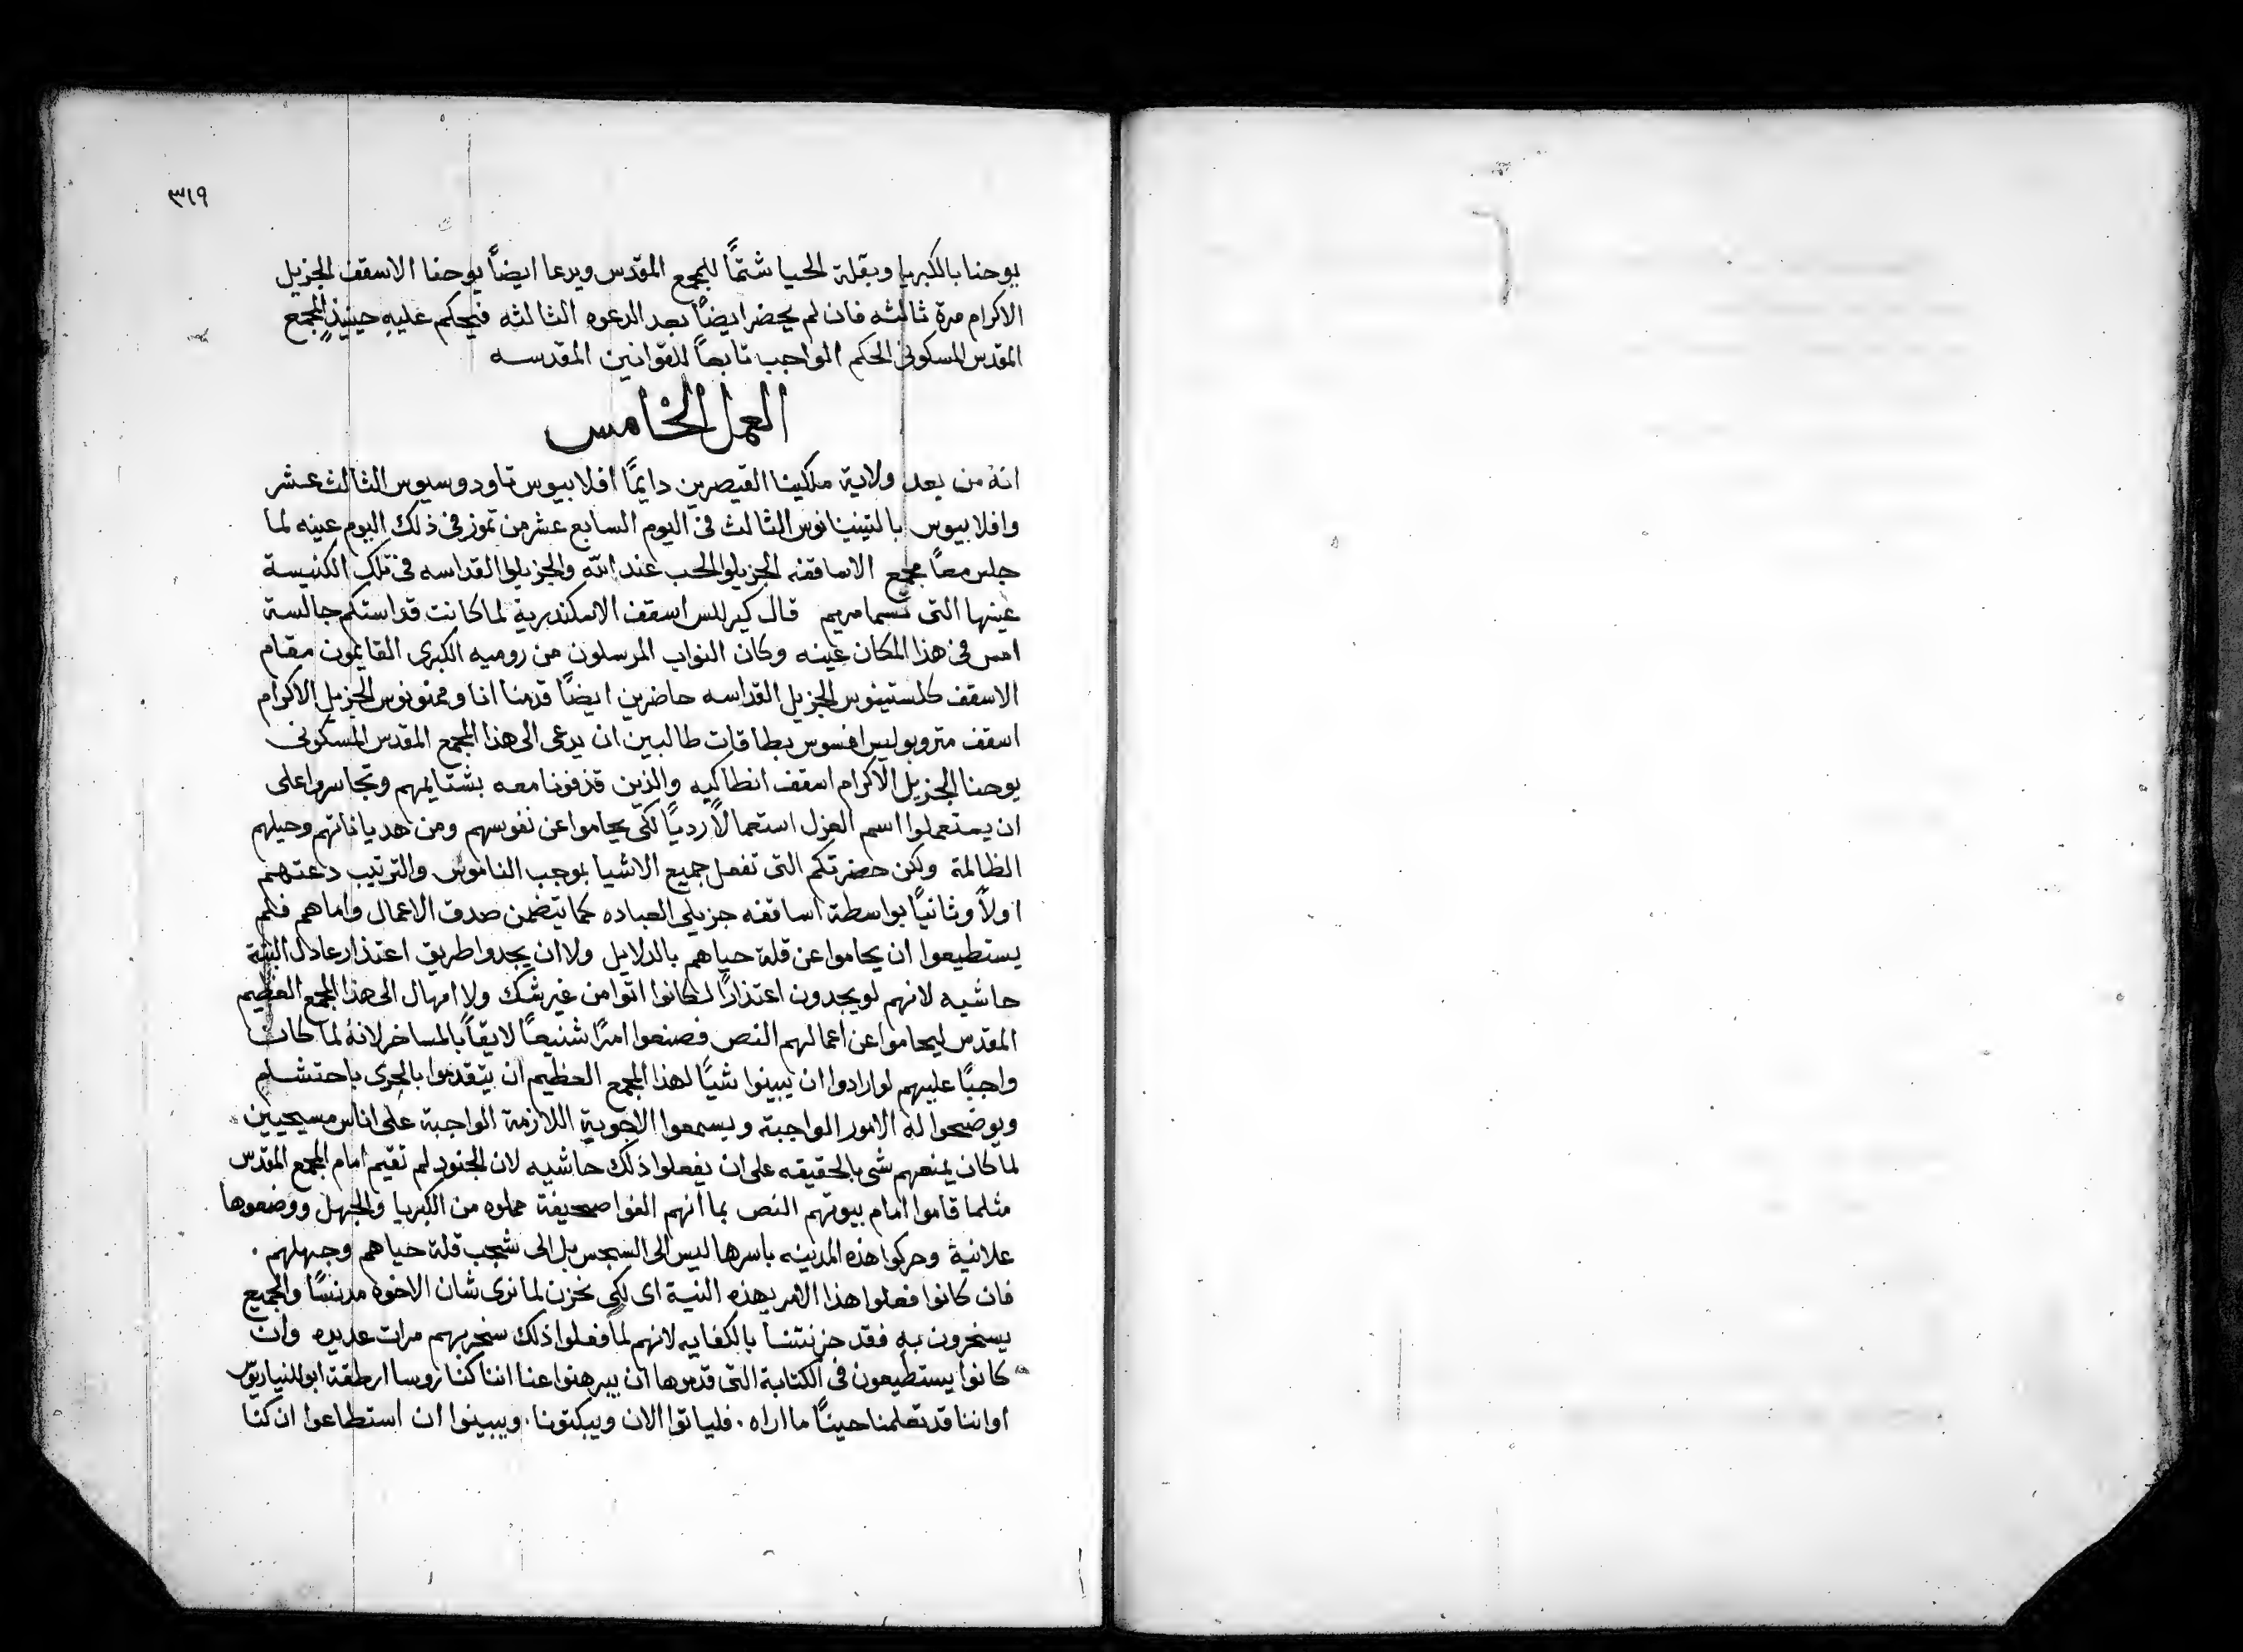 ٣١٩
يوحنا بالكبريا وبقلة الحيا شتمًا للمجمع المقدس ويدعا ايضاً يوحنا الاسقف الجزيل
الاكرام مرة ثالثه فان لم يحضر ايضاً بعد الدعوه الثالثه فيحكم عليهِ حينيذٍ المجمع
المقدس المسكوني الحكم الواجب تابعاً للقوانين المقدسه
العمل الخامس
انه من بعد ولاية ملكينا القيصرين دايمًا افلابيوس تاودوسيوس الثالث عشر
وافلابيوس بالنتينيانوس الثالث في اليوم السابع عشر من تموز في ذلك اليوم عينه لما
جلس معاً مجمع الاساقفه الجزيلوا الحب عند الله والجزيلوا القداسه في تلك الكنيسة
عينها التي تسما مريم قال كيرللس اسقف الاسكندرية لما كانت قداستكم جالسة
امس في هذا المكان عينه وكان النواب المرسلون من روميه الكبرى القايمون مقام
الاسقف كلستينوس الجزيل القداسه حاضرين ايضًا قدمنا انا وممنونوس الجزيل الاكرام
اسقف متروبوليس افسوس بطاقات طالبين ان يدعى الى هذا المجمع المقدس المسكوني
يوحنا الجزيل الاكرام اسقف انطاكيه والذين قذفونا معه بشتايمهم وتجاسروا على
ان يستعملوا اسم العزل استعمالاً رديًا لكي يحاموا عن نفوسهم ومن هدياناتهم وحيلهم
الظالمة ولكن حضرتكم التي تفعل جميع الاشيا بموجب الناموس والترتيب دعتهم
اولاً وثانيًا بواسطة اساقفه جزيلي العباده كما يتضمن صدق الاعمال واما هم فلم
يستطيعوا ان يحاموا عن قلة حياهم بالدلايل ولا ان يجدوا طريق اعتذار عادل البتة
حاشيه لانهم لو يجدون اعتذارًا لكانوا اتوا من غير شك ولا امهال الى هذا المجمع العظيم
المقدس ليحاموا عن اعمالهم النص فصنعوا امرًا شنيعاً لايقاً بالمساخر لانهُ لما كان
واجبًا عليهم لو ارادوا ان يبينوا شيًا لهذا المجمع العظيم ان يتقدموا بالحرى باحتشام
ويوضحوا له الامور الواجبة ويسمعوا الاجوبة اللازمة الواجبة على اناس مسيحيين
لما كان يمنعهم شي بالحقيقه على ان يفعلوا ذلك حاشيه لان الجنود لم تقيم امام المجمع المقدس
مثلما قاموا امام بيوتهم النص بما انهم الفوا صحيفة مملوه من الكبريا والجهل ووضعوها
علانية وحركوا هذه المدينه باسرها ليس الى السجس بل الى شجب قلة حياهم وجهلهم ٠
فان كانوا فعلوا هذا الامر بهذه النية اى لكي نحزن لما نرى شان الاخوه مدنسًا والجميع
يسخرون به فقد حزنتنا بالكفايه لانهم لما فعلوا ذلك سنحربهم مرات عديده وان
كانوا يستطيعون في الكتابة التي قدموها ان يبرهنوا عنا اننا كنا روسا ارطقة ابوالنياريوس
او اننا قد تعلمنا حينًا ما اراه ٠ فلياتوا الان ويبكتونا ٠ ويبينوا ان استطاعوا ان كنا